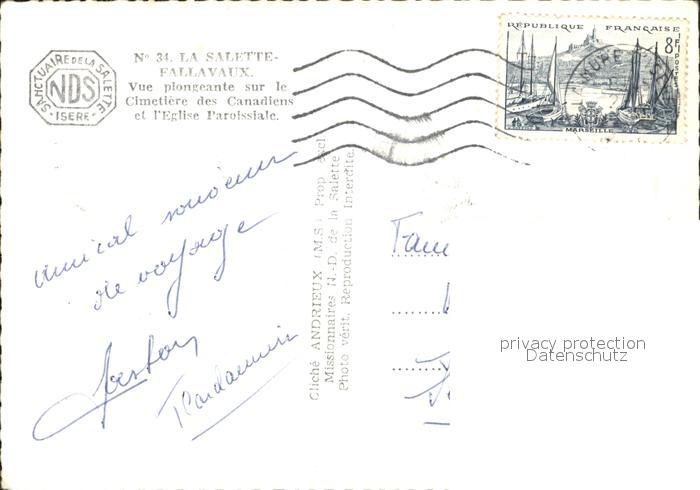 SANCTUAIRE DE LA SALETTE
NDS
- ISÈRE -
N° 34. LA SALETTE-
FALLAVAUX.
Vue plongeante sur le
Cimetière des Canadiens
et l'Eglise Paroissiale.
RÉPUBLIQUE FRANÇAISE
8F
POSTES
MARSEILLE
amical souvenir
de voyage
Gaston
Cliché ANDRIEUX (M.S.) Prop. excl
Missionnaires N.-D. de la Salette
Photo vérit. Reproduction Interdite.
Fam
privacy protection
Datenschutz